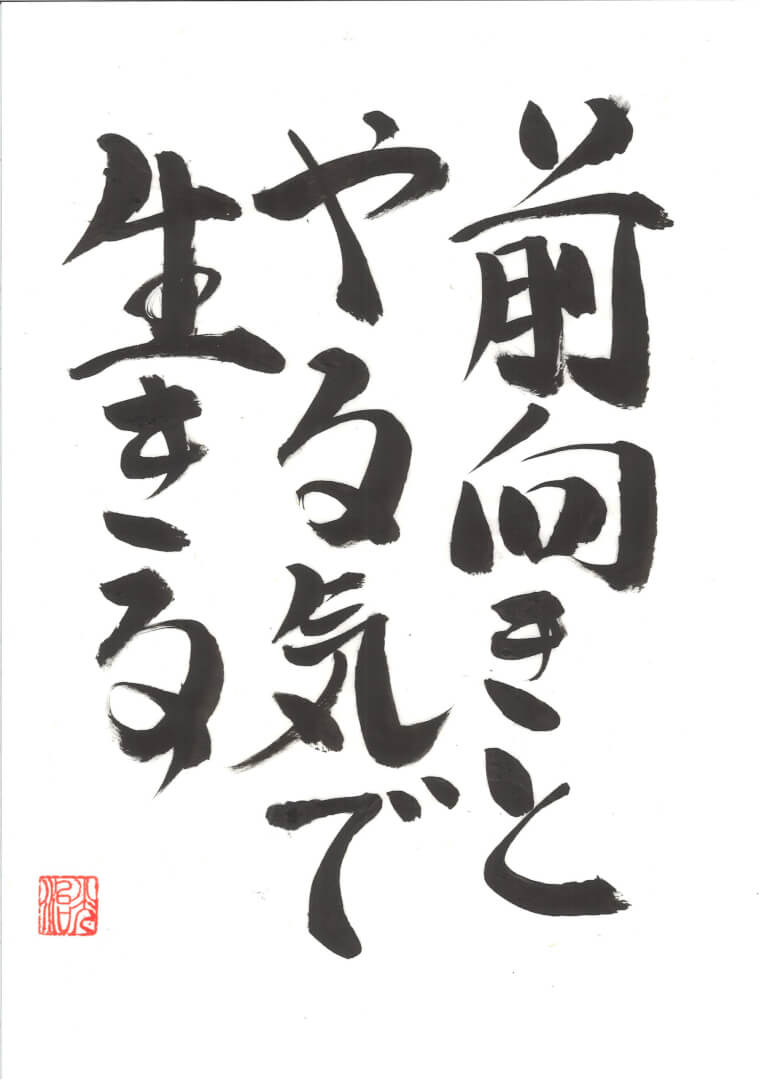 前向きと
やる気で
生きる